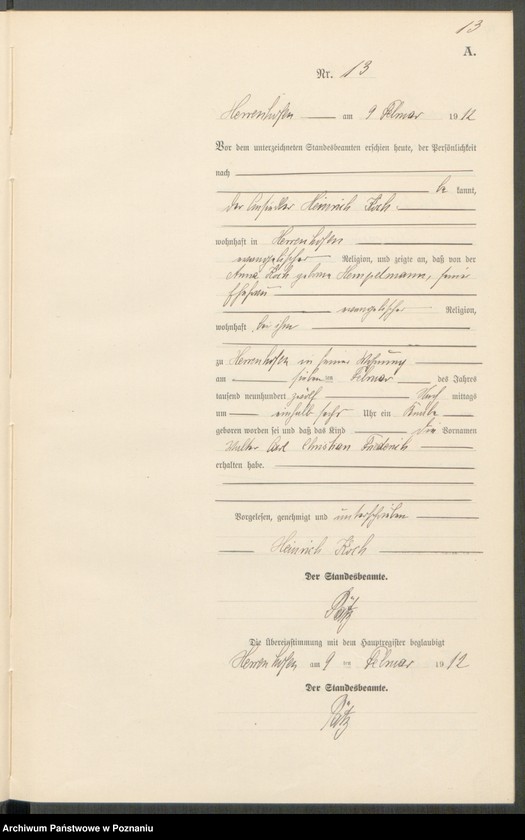 13
A.
Nr. 13
Herrenhofen am 9 Februar 1912
Vor dem unterzeichneten Standesbeamten erschien heute, der Persönlichkeit
nach
be kannt,
der Ansiedler Heinrich Koch
wohnhaft in Herrenhofen
evangelischer Religion, und zeigte an, daß von der
Anna Koch geborne Hempelmann, seiner
Ehefrau
evangelischer Religion,
wohnhaft bei ihm
zu Herrenhofen in seiner Wohnung
am sieben ten Februar des Jahres
tausend neunhundert zwölf Nach mittags
um einhalb sechs Uhr ein Knabe
geboren worden sei und daß das Kind die Vornamen
Walter Carl Christian Friederich
erhalten habe.
Vorgelesen, genehmigt und unterschrieben
Heinrich Koch
Der Standesbeamte.
Die Übereinstimmung mit dem Hauptregister beglaubigt
Herrenhofen am 9 ten Februar 1912
Der Standesbeamte.
Archiwum Państwowe w Poznaniu